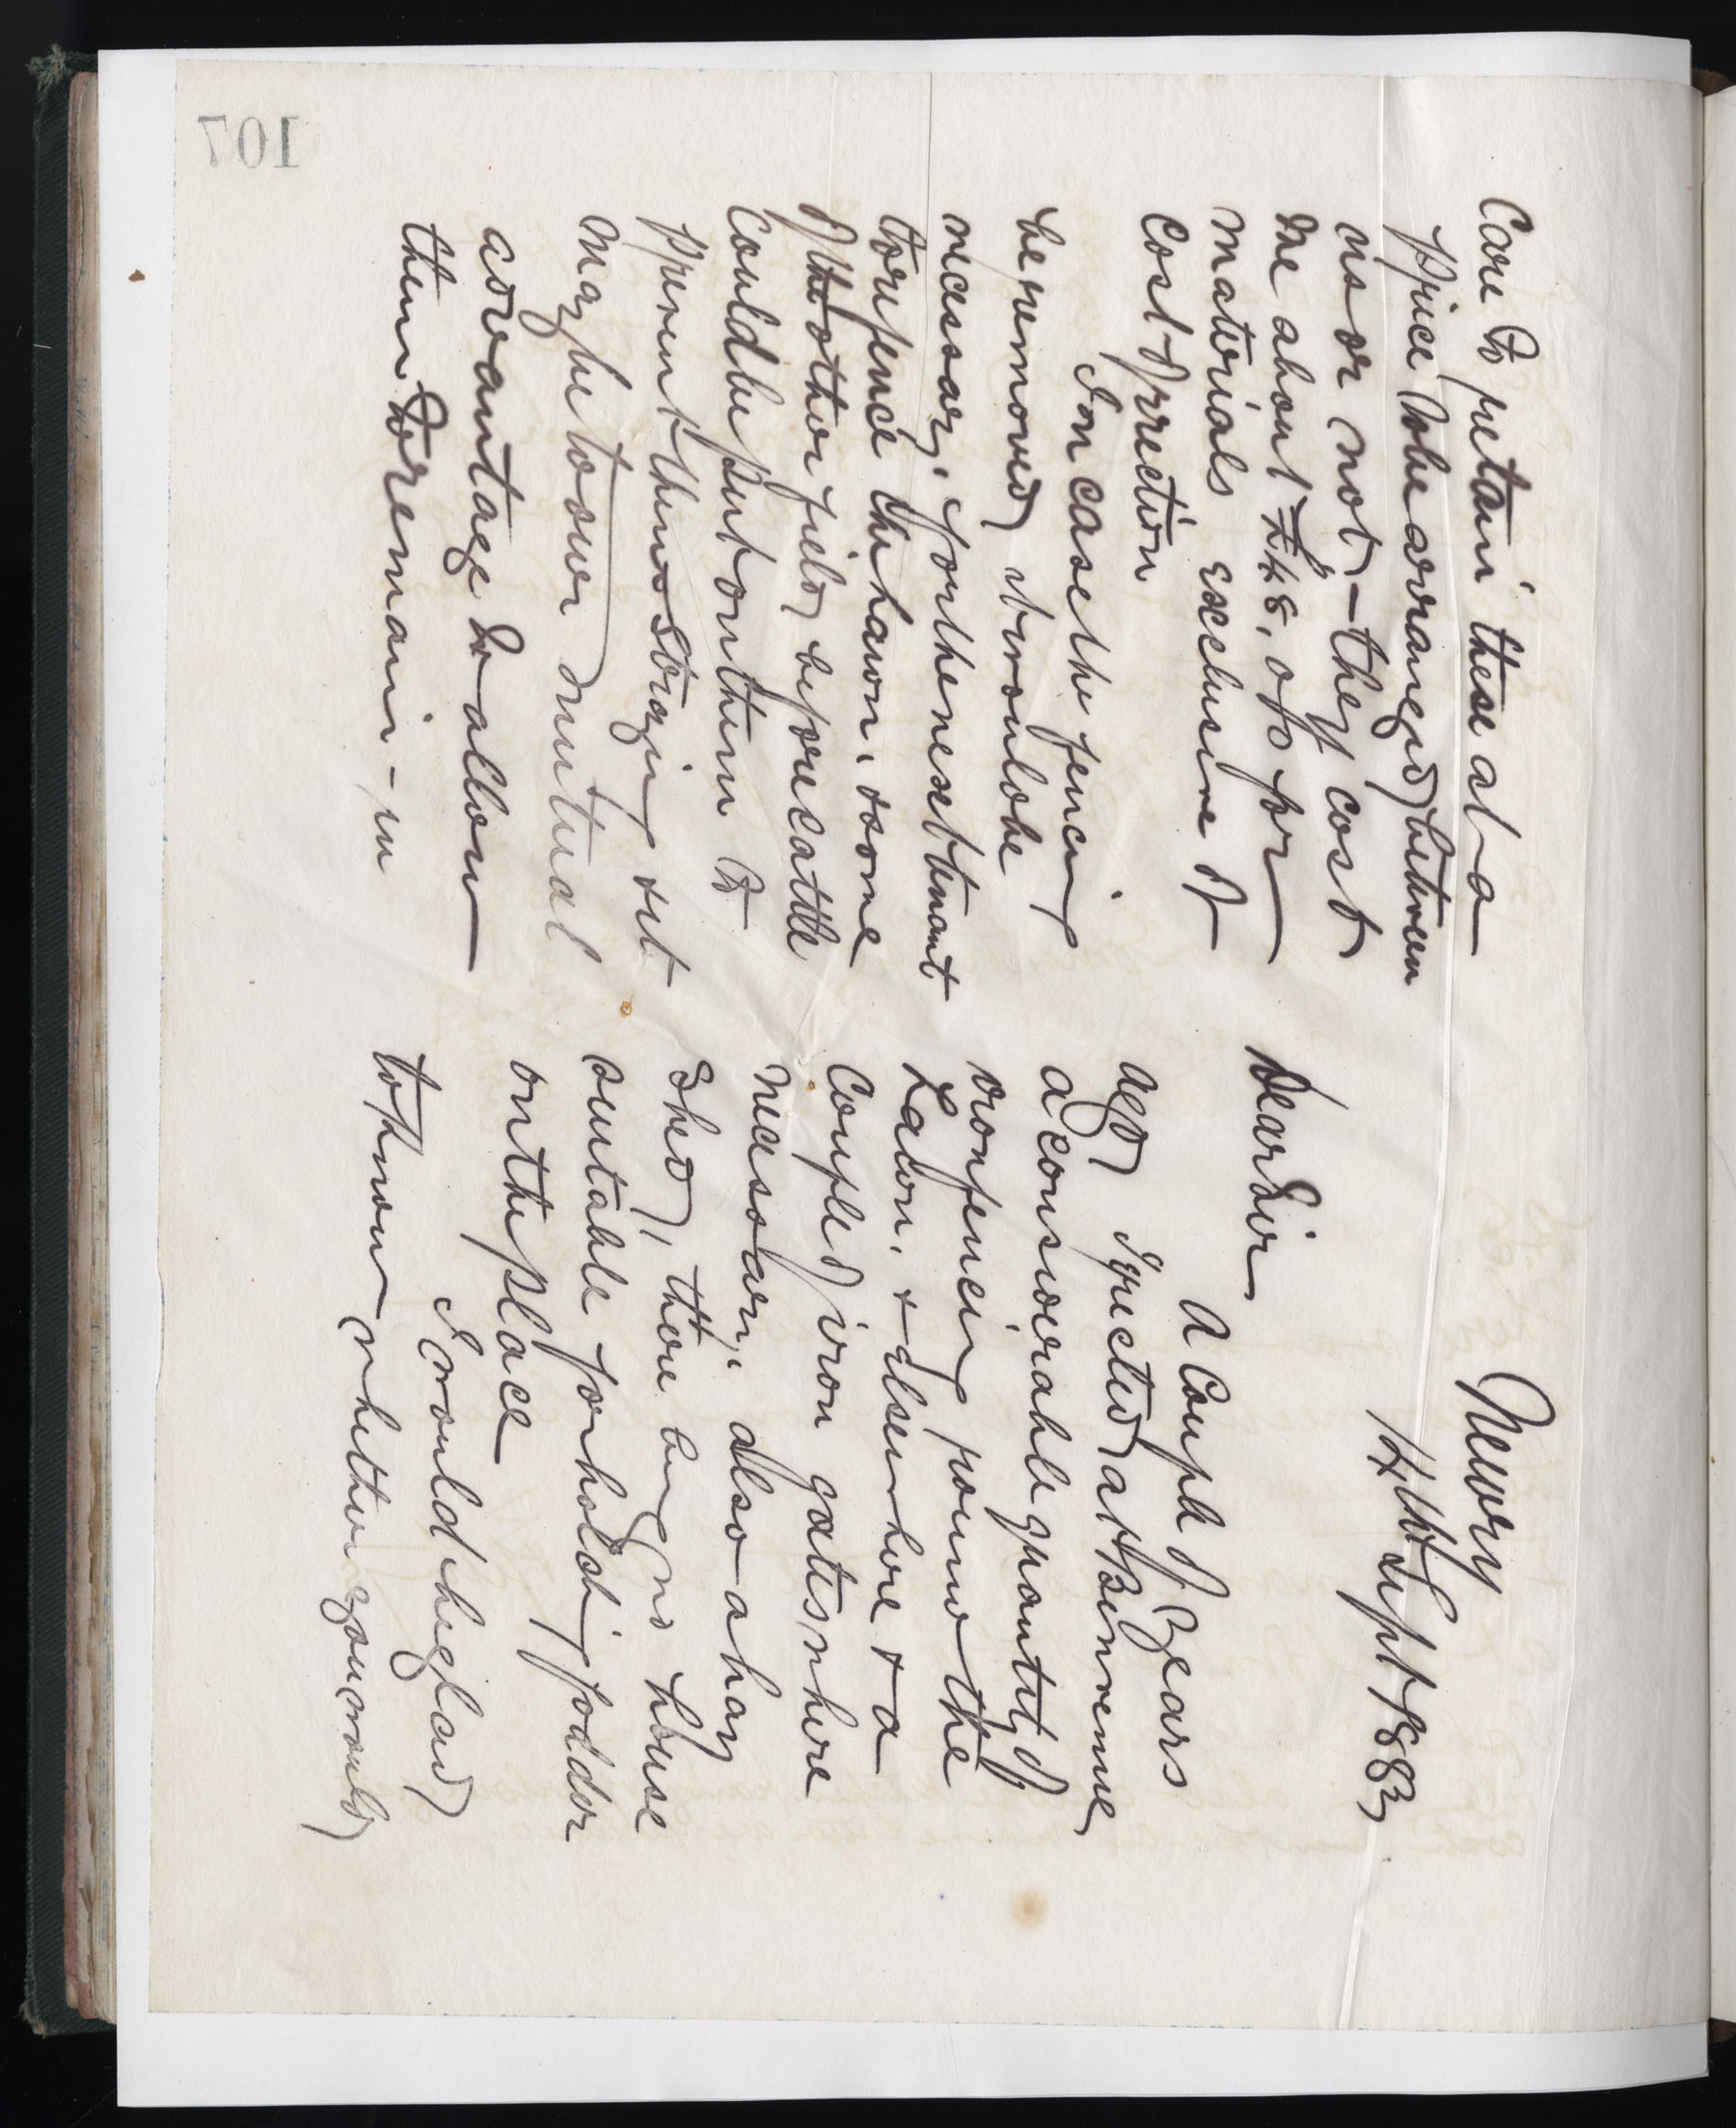 Newry
14th Sept 1883
Dear Sir
A Couple of Years
ago I erected at Benvenue
a considerable quantity of
iron fencing round the
Lawn, & elsewhere & a
Couple of iron gates where
necessary, also a hay
Shed, there being no house
suitable for holding fodder
on the place
I would be glad
to know whether you would
Care to retain these at a
price to be arranged between
us or not, – they cost
me about £48, o/o for
materials exclusive of
Cost of erection
In case the fencing
be removed it would be
necessary, for the next tenant
to re fence the lawn, & some
of the other fields before cattle
Could be put on them to
prevent them straying & it
May be to our mutual
advantage to allow
them to remain – in
107